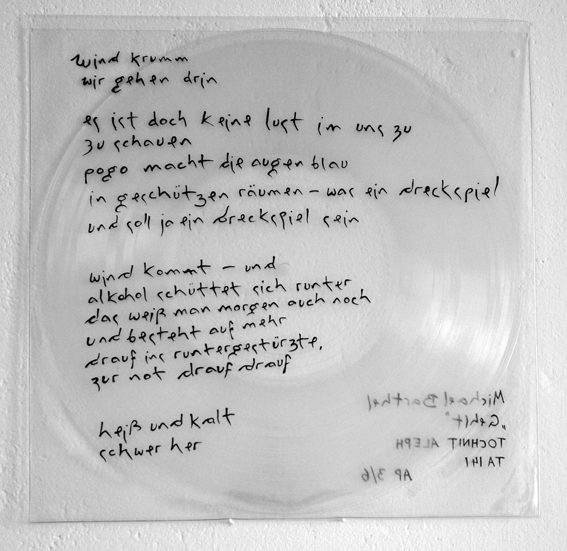 wind krumm
wir gehen drin
es ist doch keine lust im uns zu
zu schauen
pogo macht die augen blau
in geschützen räumen – was ein dreckspiel
und soll ja ein dreckspiel sein
wind kommt – und
alkohol schüttet sich runter
das weiß man morgen auch noch
und besteht auf mehr
drauf ins runtergestürzte,
zur not drauf drauf
heiß und kalt
schwer her
Michael Barthel
TOCHNIT ALEPH
TA 141
AP 3/6